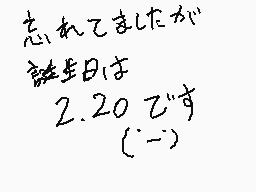 忘れてましたが
誕生日は
2.20です
(˙–˙)